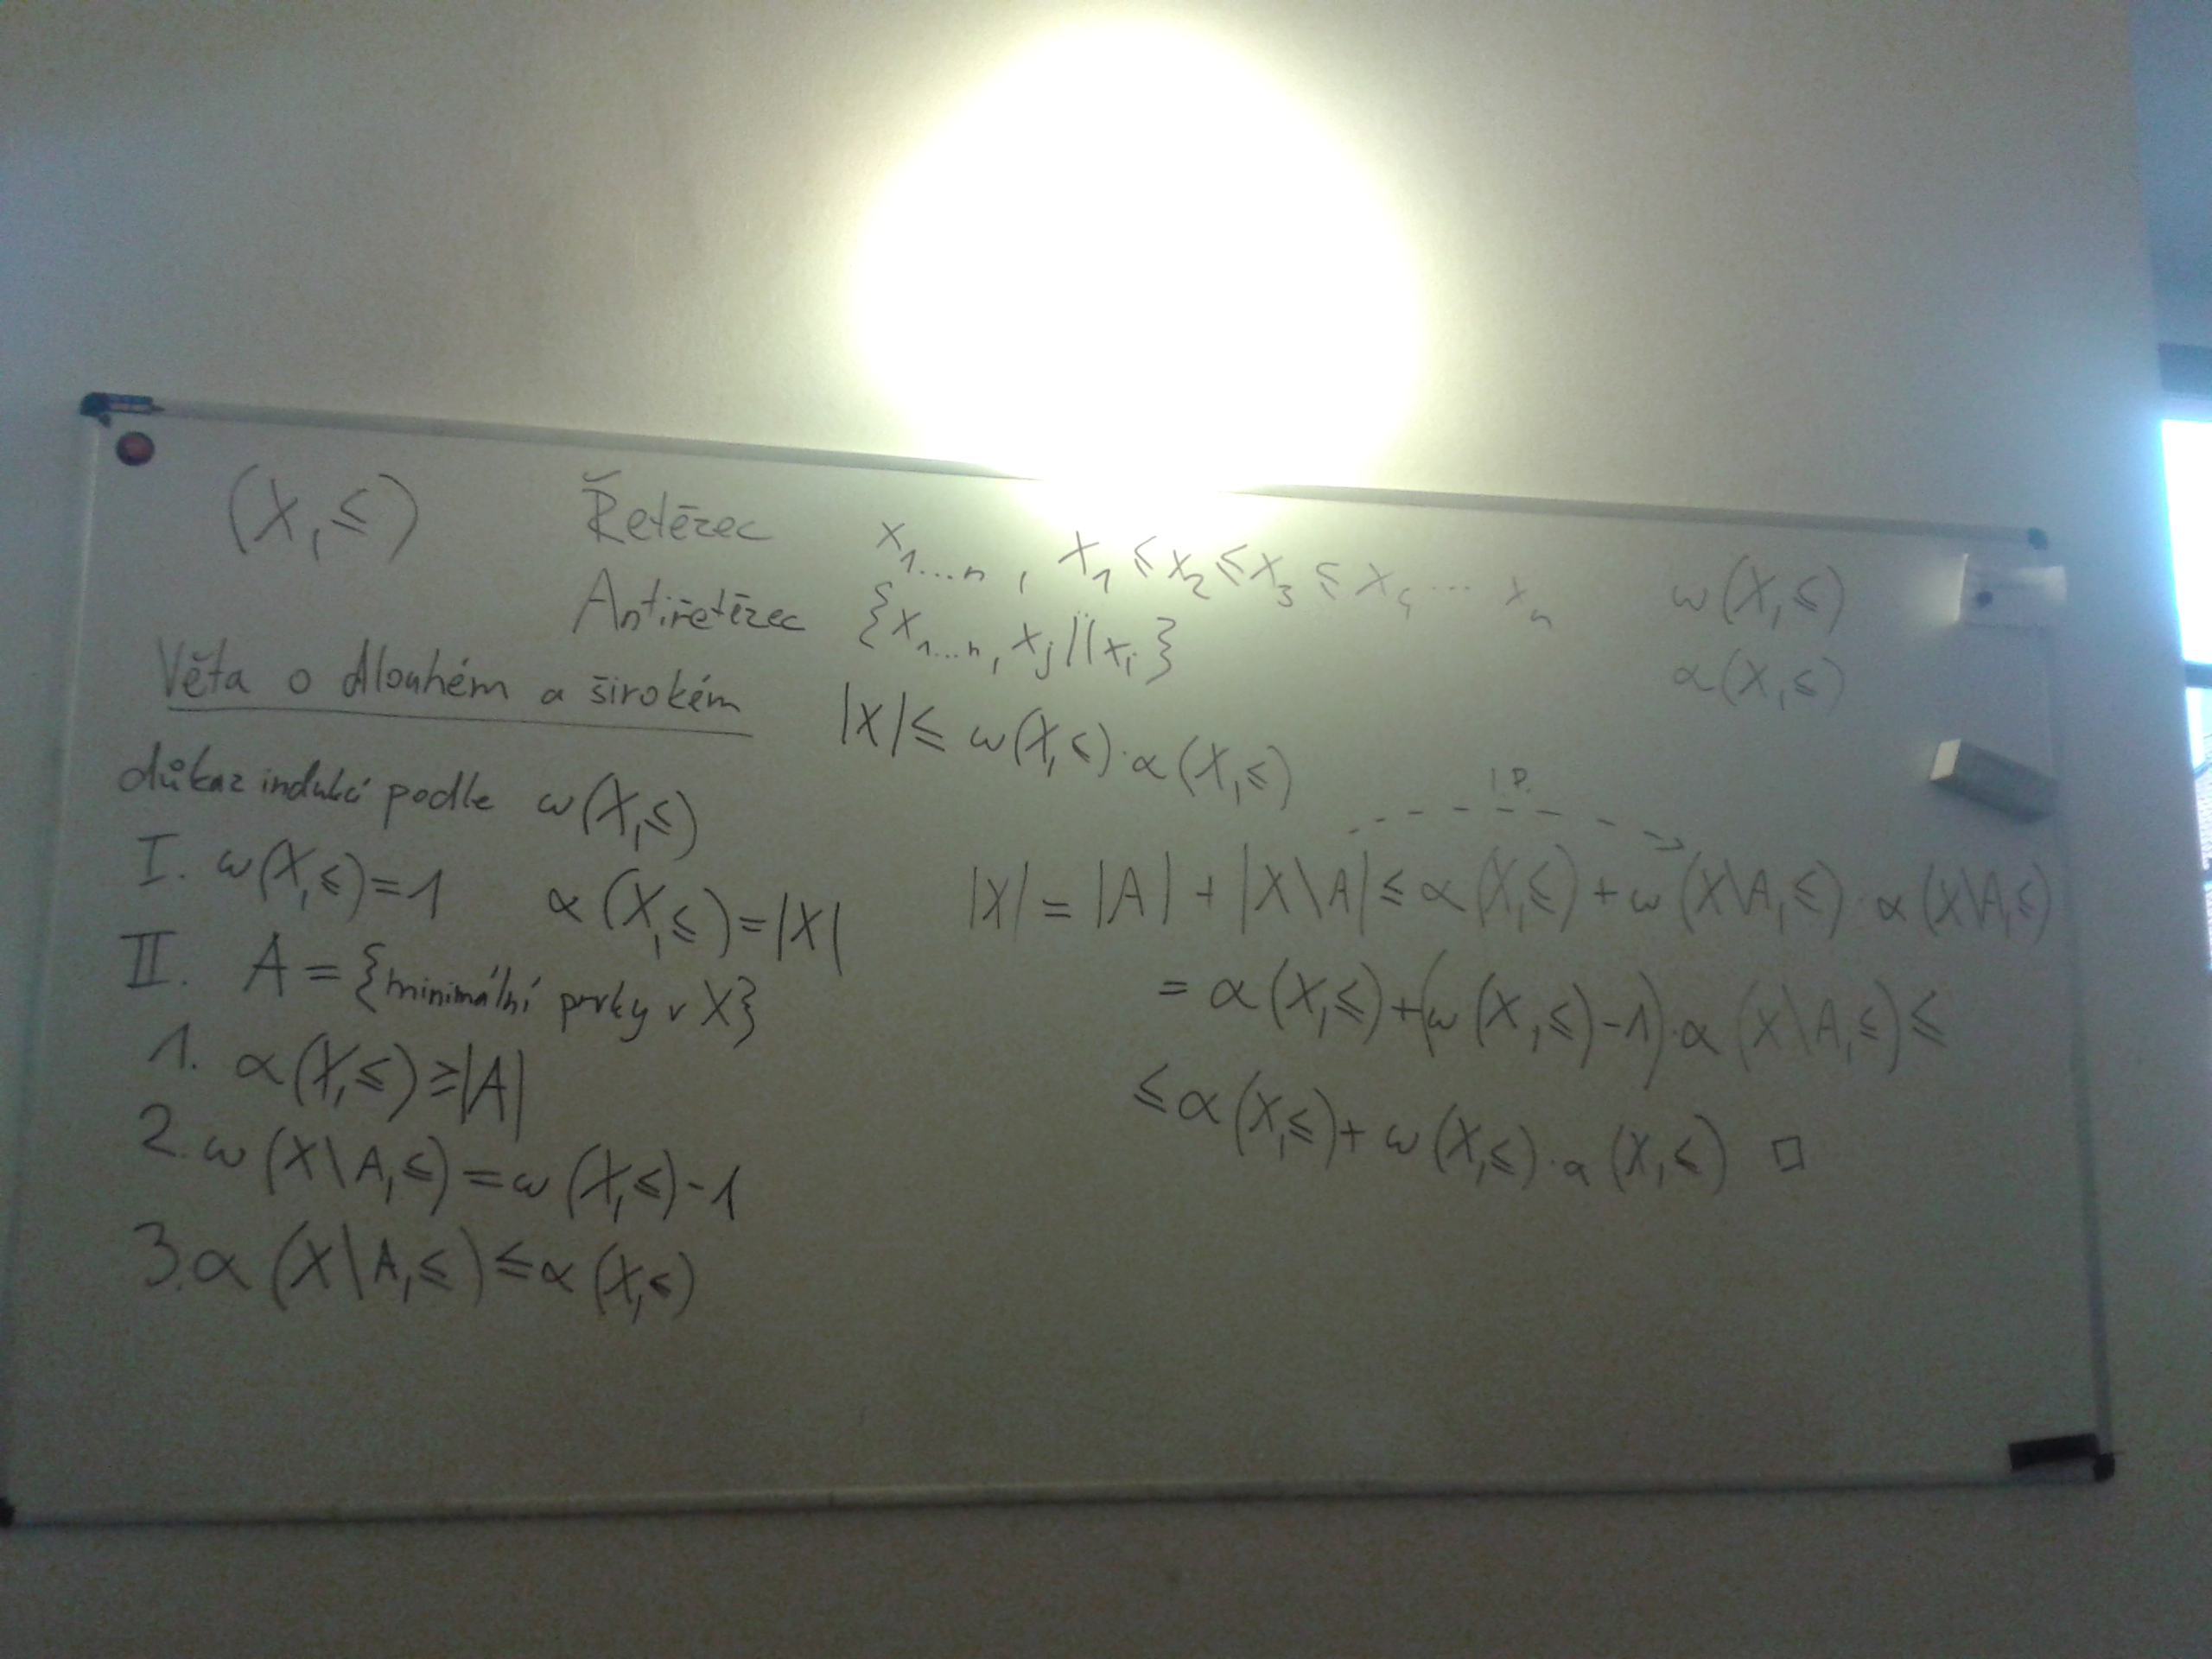 (X,≤) Řetězec x₁…ₙ, x₁ ≤ x₂ ≤ x₃ ≤ x₄ … xₙ ω(X,≤)
Antiřetězec {x₁…ₙ, xⱼ||xᵢ} α(X,≤)
Věta o dlouhém a širokém |X| ≤ ω(X,≤)·α(X,≤)
důkaz indukcí podle ω(X,≤)
I. ω(X,≤)=1 α(X,≤)=|X|
II. A = {minimální prvky v X}
1. α(X,≤) ≥ |A|
2. ω(X\A,≤) = ω(X,≤)-1
3. α(X\A,≤) ≤ α(X,≤)
I.P.
|X| = |A| + |X\A| ≤ α(X,≤) + ω(X\A,≤)·α(X\A,≤)
= α(X,≤)+(ω(X,≤)-1)·α(X\A,≤) ≤
≤ α(X,≤)+ ω(X,≤)·α(X,≤) □